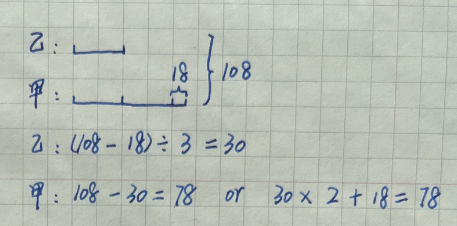 乙:
18
108
甲:
乙: (108 - 18) ÷ 3 = 30
甲: 108 - 30 = 78 or 30 × 2 + 18 = 78